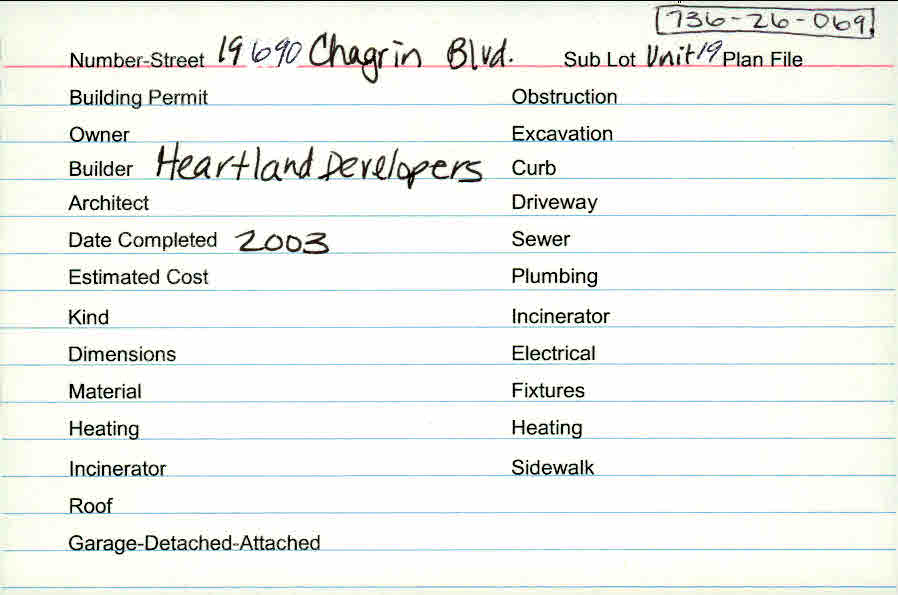 736-26-069
Number-Street 19690 Chagrin Blvd. Sub Lot Unit 19 Plan File
Building Permit Obstruction
Owner Excavation
Builder Heartland Developers Curb
Architect Driveway
Date Completed 2003 Sewer
Estimated Cost Plumbing
Kind Incinerator
Dimensions Electrical
Material Fixtures
Heating Heating
Incinerator Sidewalk
Roof
Garage-Detached-Attached